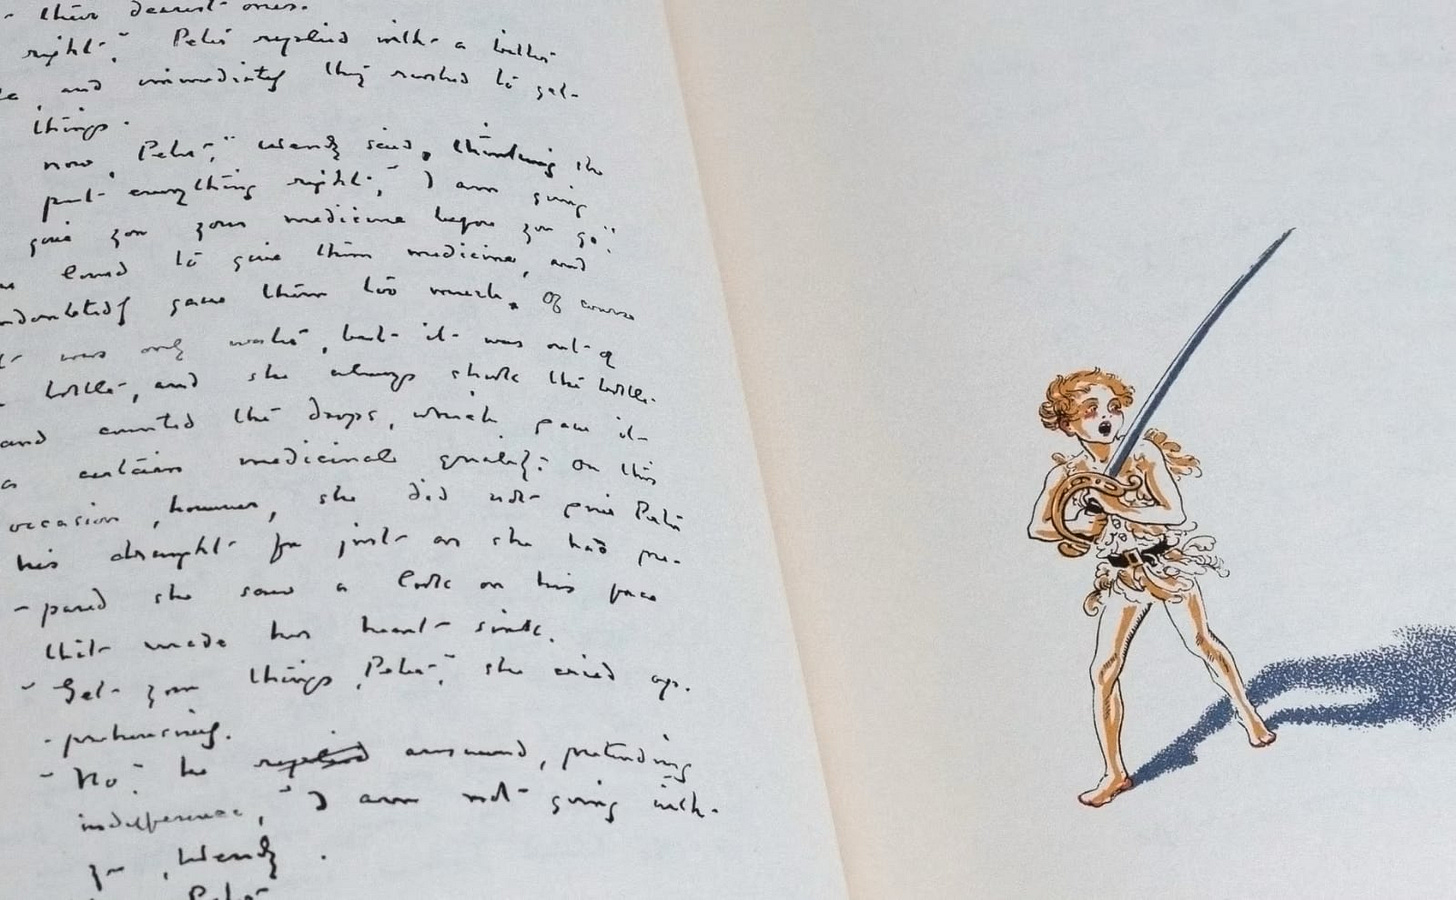 - their dearest ones.
right," Peter replied with a bitter
and immediately they rushed to get
things.
now, Peter," Wendy said, thinking she
put everything right, "I am going
give you your medicine before you go."
loved to give them medicine, and
undoubtedly gave them too much. Of course
it was only water, but it was out of
bottle, and she always shook the bottle
and counted the drops, which gave it
a certain medicinal quality. On this
occasion, however, she did not give Peter
his draught for just as she had pre-
-pared she saw a look on his face
that made her heart sink.
"Get your things, Peter," she cried
"No", he replied answered, pretending
indifference, "I am not going with
you, Wendy.
Peter